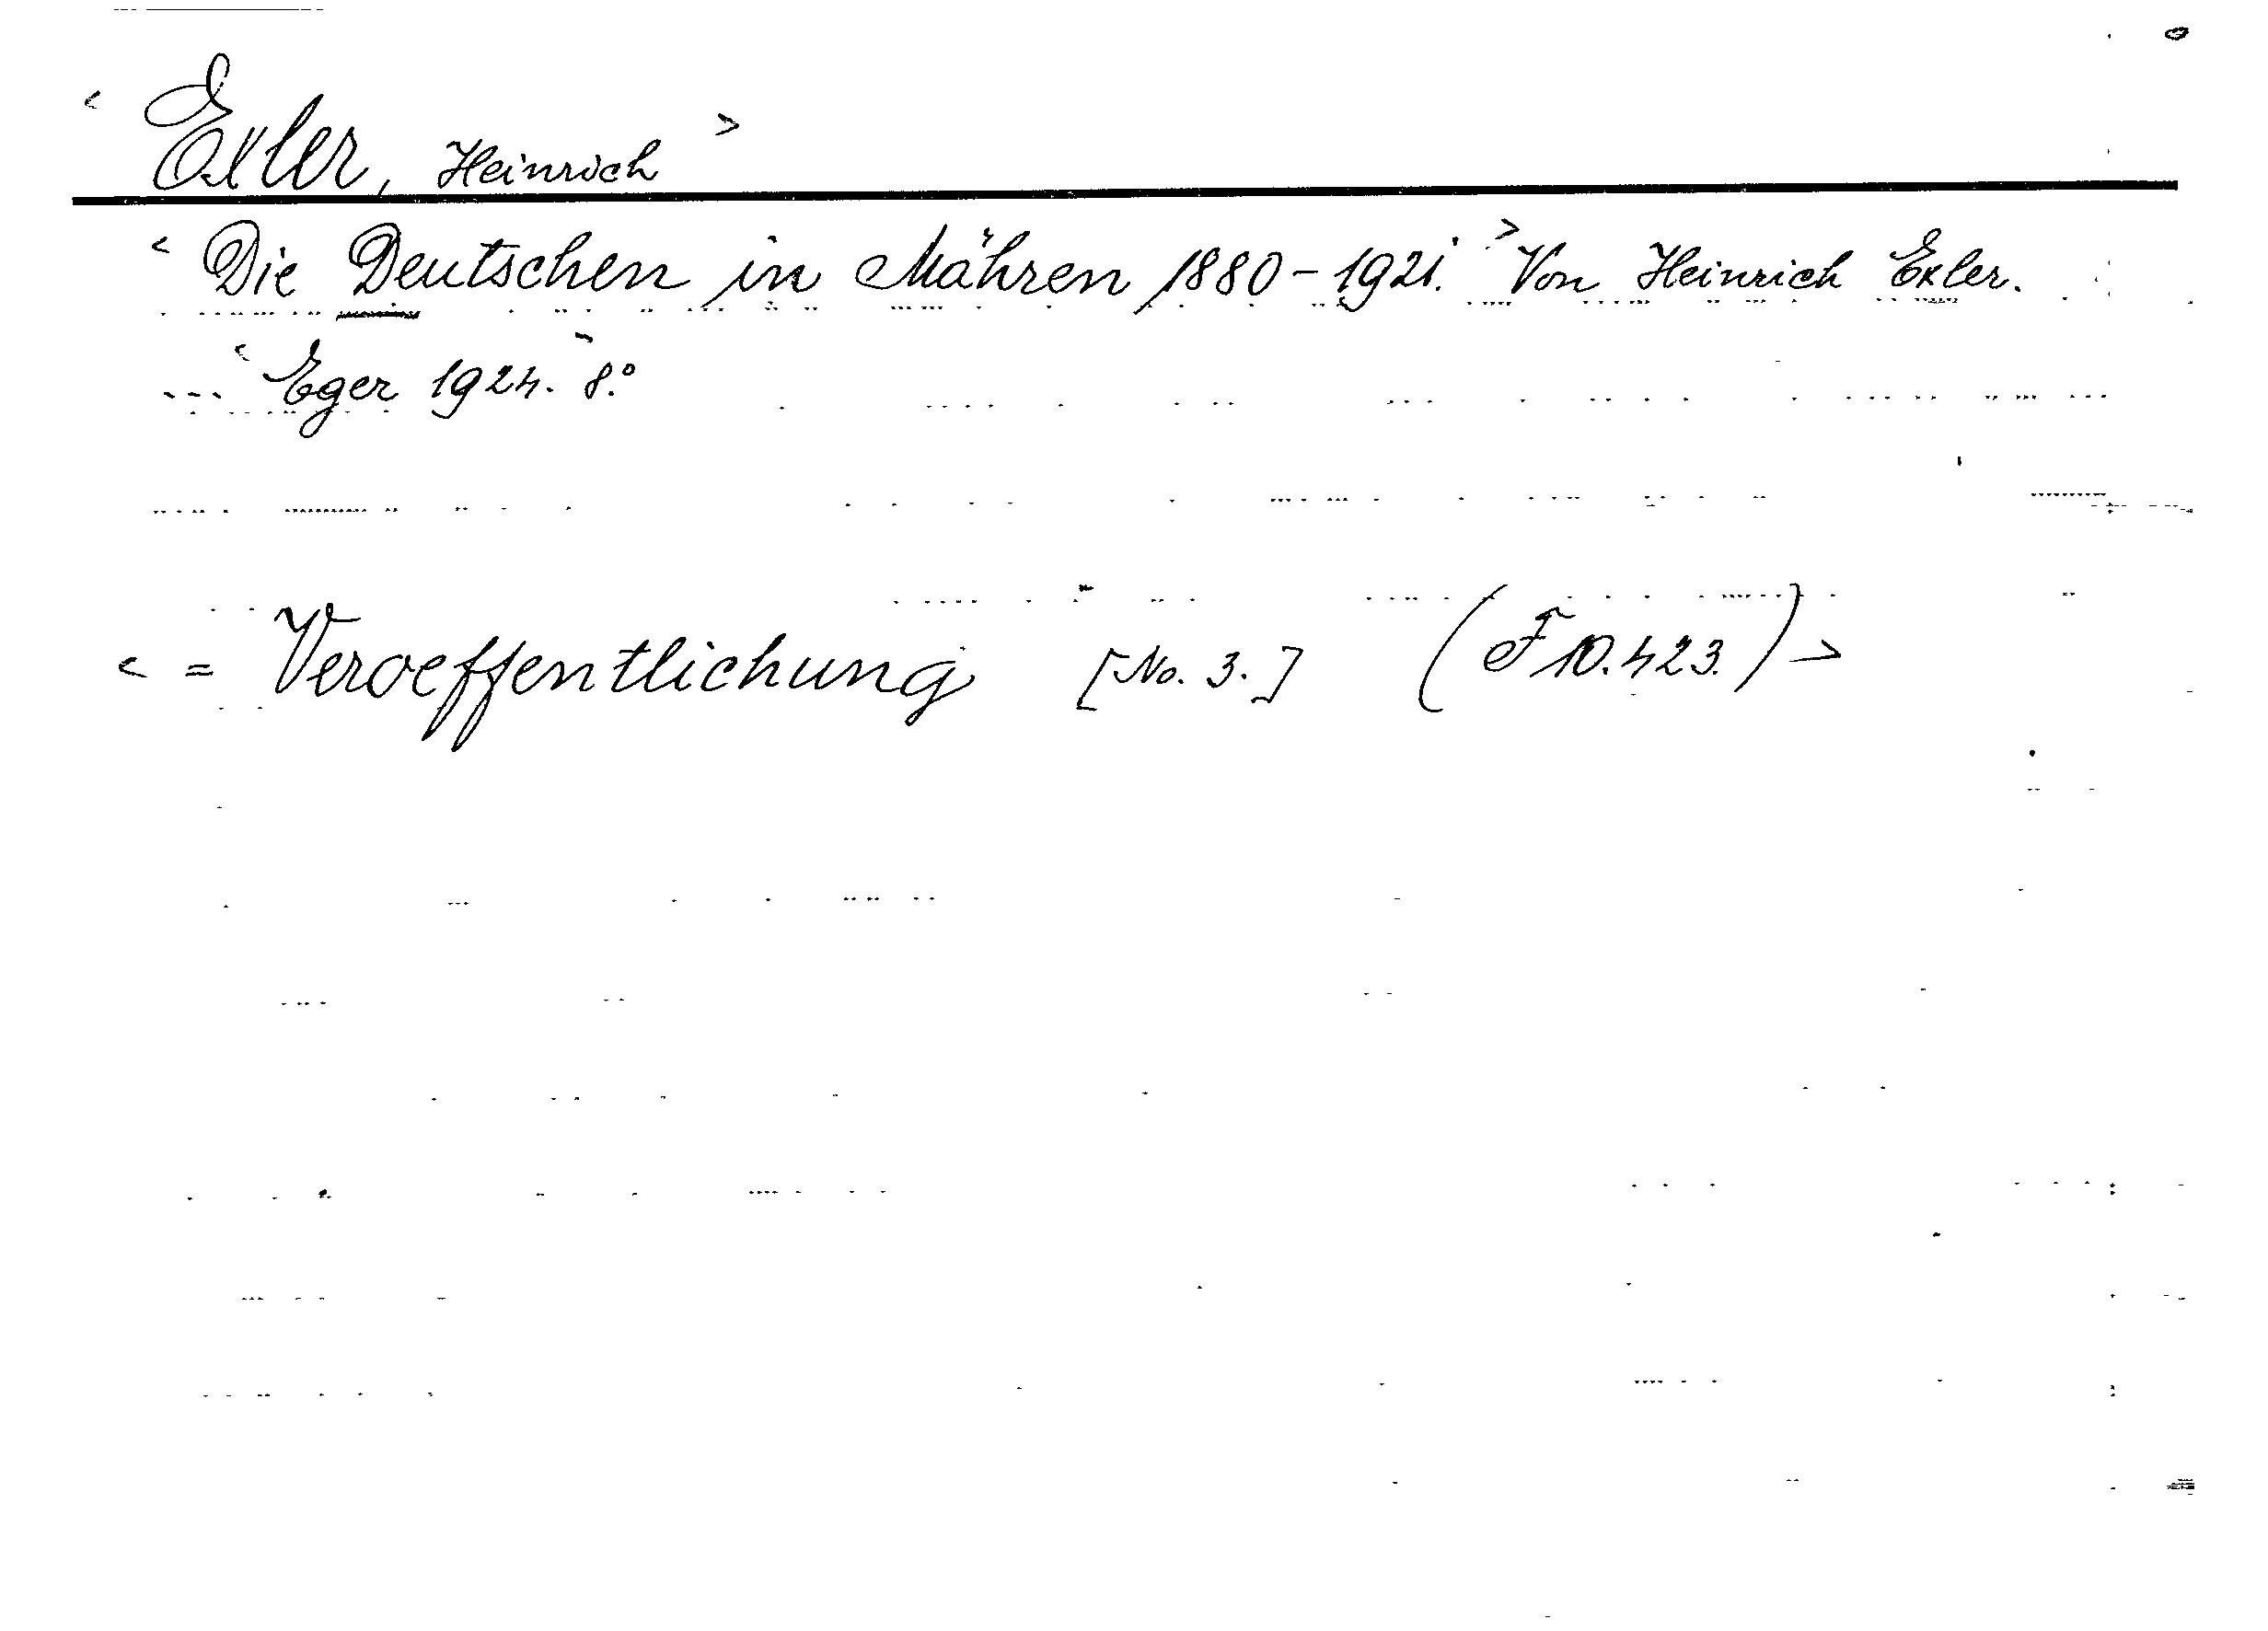 < Exler, Heinrich >
< Die Deutschen in Mähren 1880-1921. > Von Heinrich Exler.
< Eger 1924. 8.°
< = Veroeffentlichung [No. 3.] (F 10.423.) >